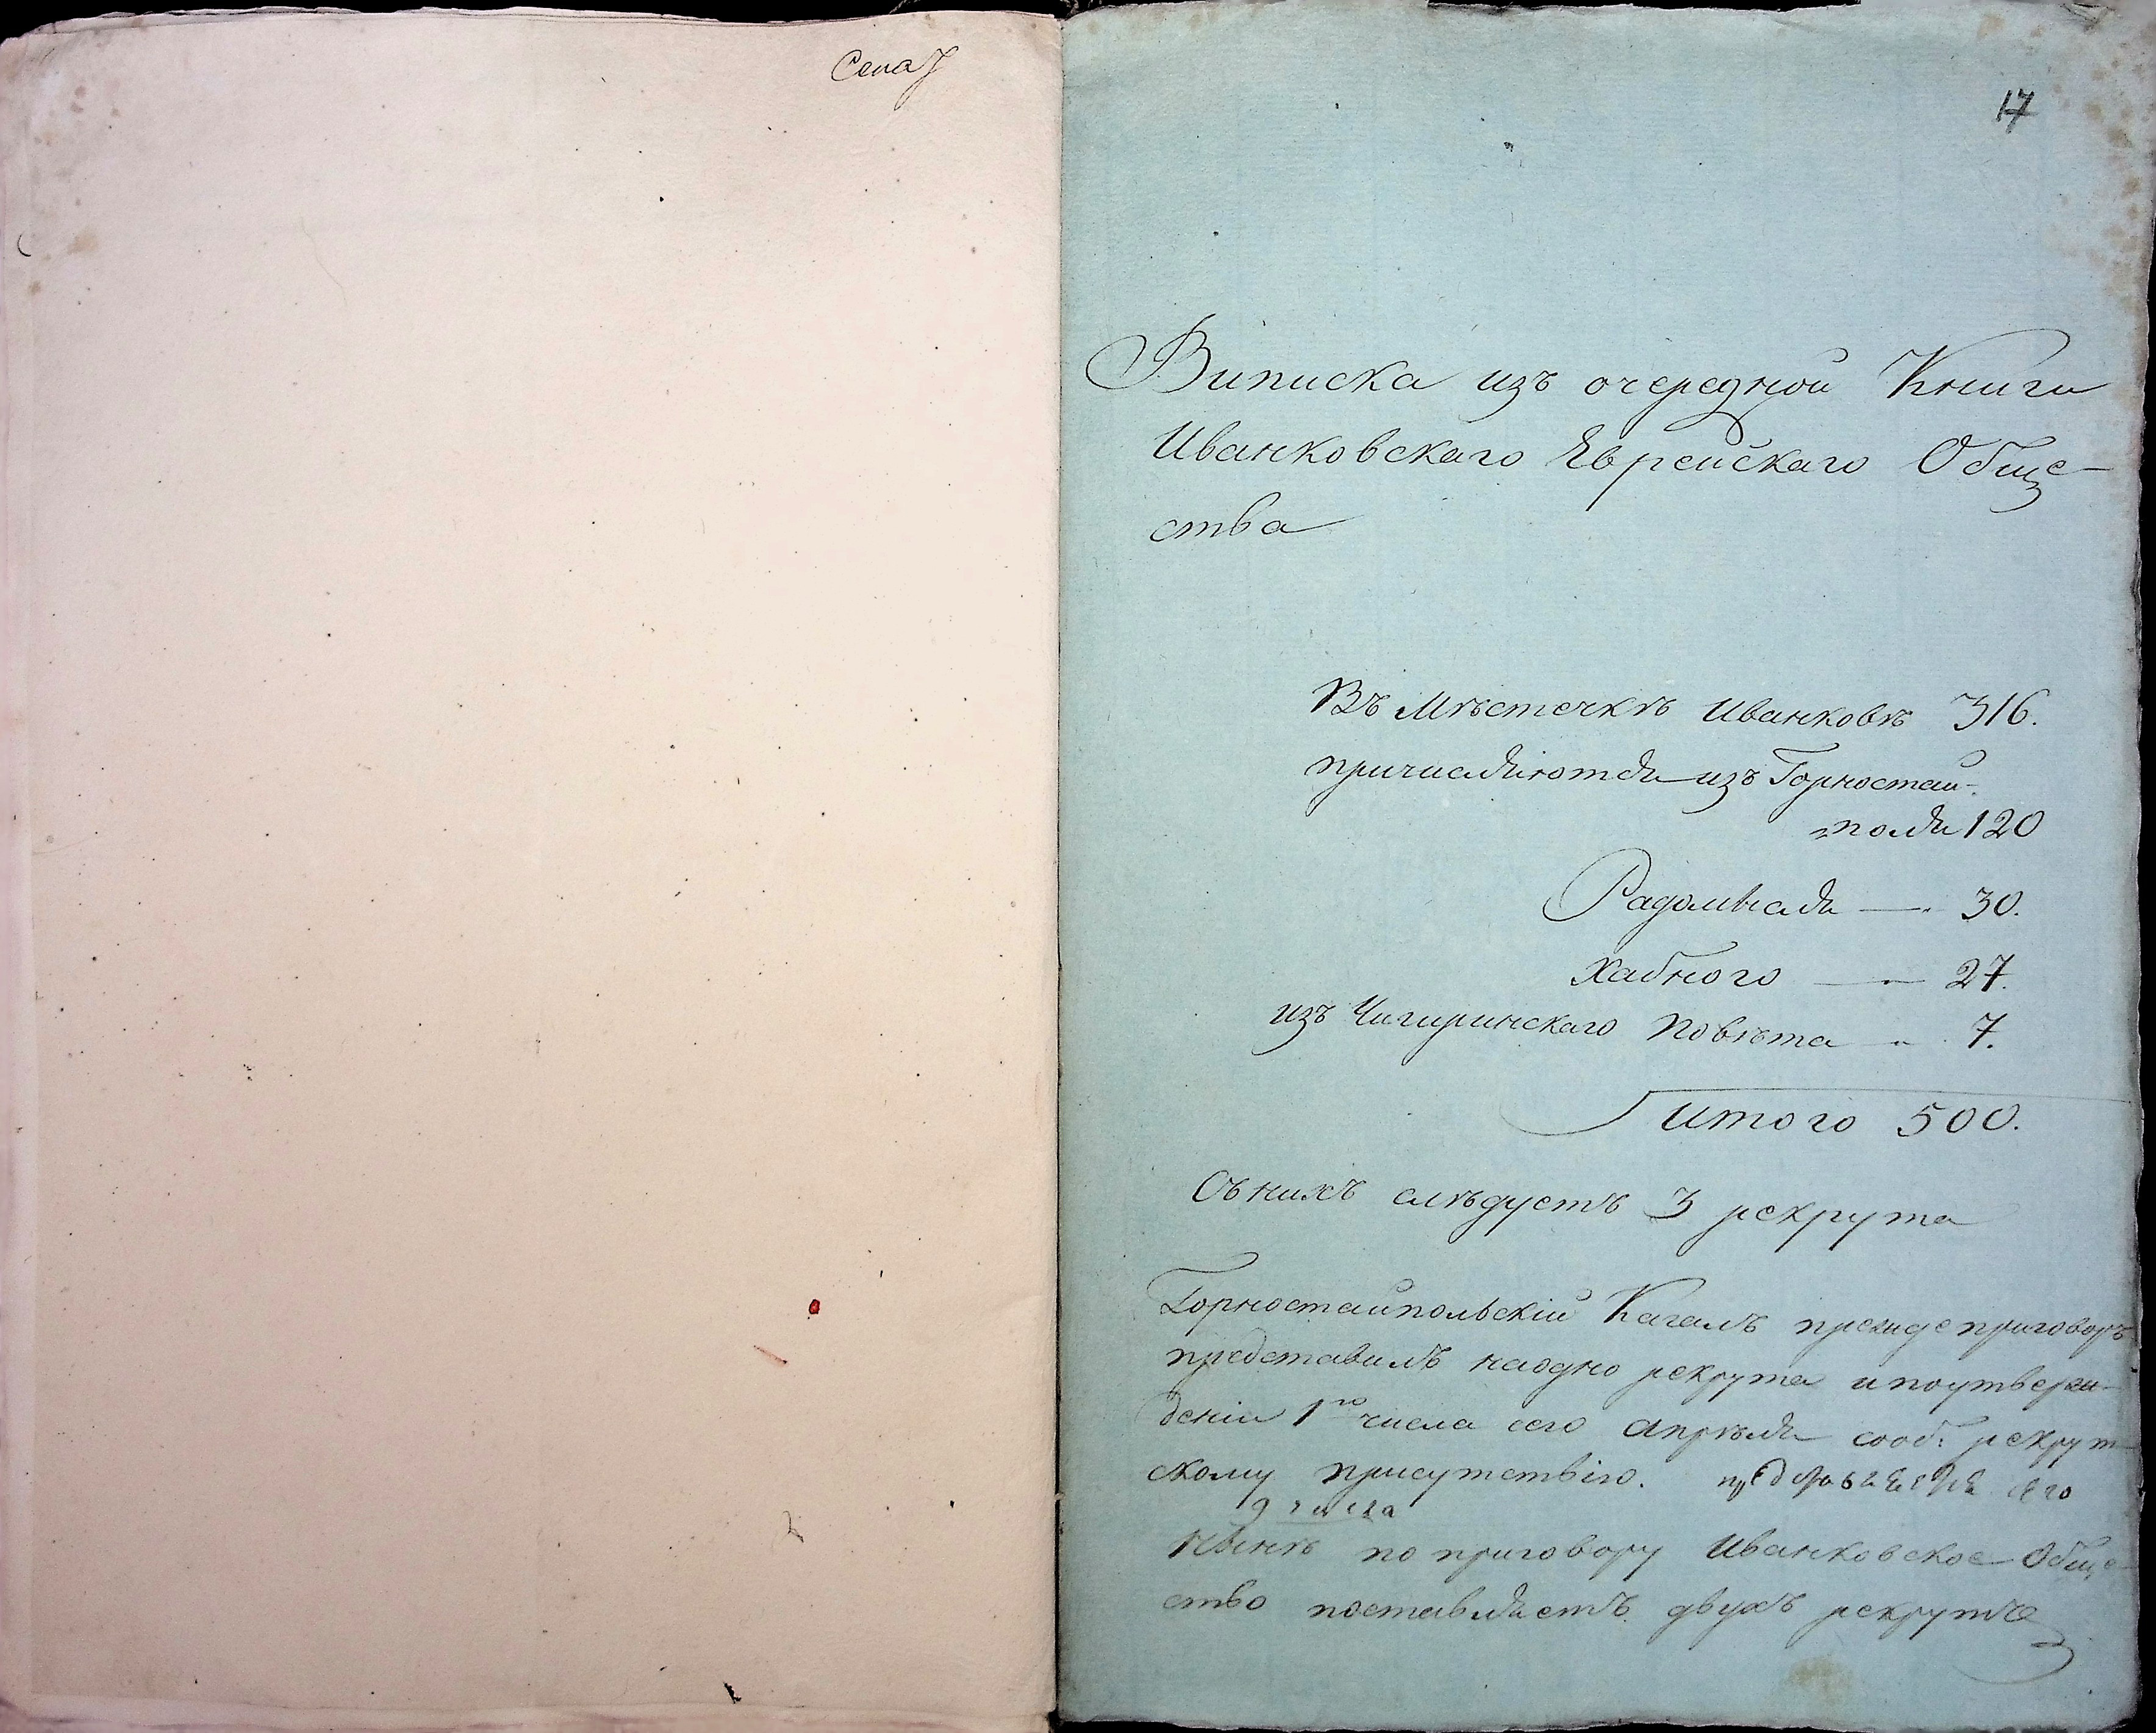 17
Виписка изъ очередной Книги
Иванковскаго Еврейскаго Обще-
ства
Въ Мѣстечкѣ Иванковѣ 316.
причисляются изъ Горностай-
поля 120
Радомысля — 30.
Хабного — 27.
изъ Чигиринскаго Повѣта — 7.
Итого 500.
Съ нихъ слѣдуетъ 3 рекрута
Горностайпольскій Кагалъ прежде приговоръ
представилъ наодно рекрута и поутверж-
деніи 1го числа сего Апрѣля сооб: рекрут
скому присутствію. его
9 числа
Нынѣ по приговору Иванковское Обще
ство поставляетъ двухъ рекрутъ